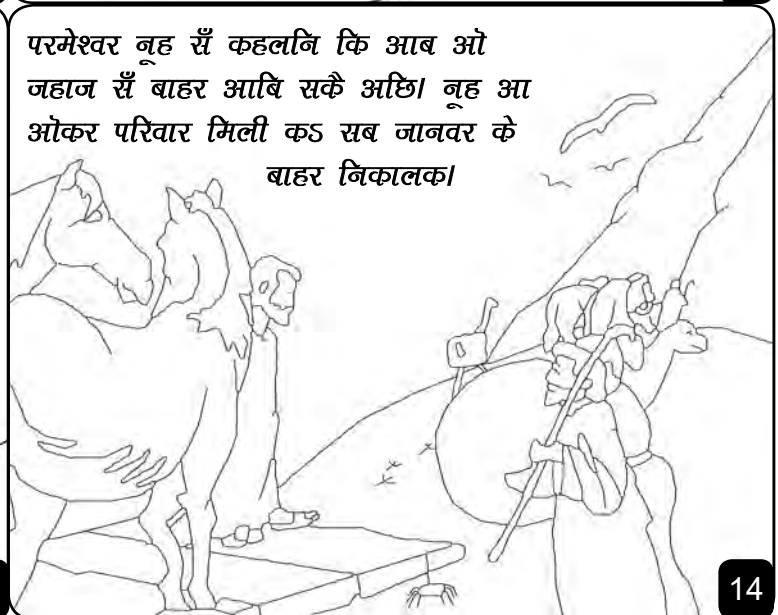 परमेश्वर नूह सँ कहलनि कि आब ऒ
जहाज सँ बाहर आबि सकै अछि। नूह आ
ऒकर परिवार मिली कऽ सब जानवर के
बाहर निकालक।
14